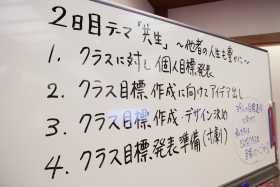 2日目テーマ「共生」～他者の人生も豊かに～
1. クラスに対し個人目標発表
2. クラス目標作成に向けてアイデア出し
3. クラス目標作成・デザイン決め
4. クラス目標発表準備(寸劇)